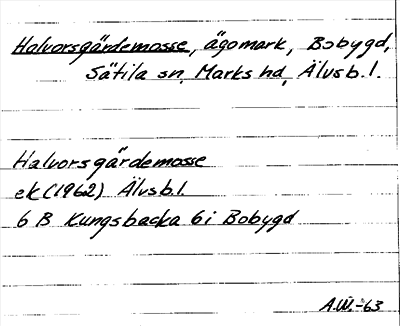 Halvorsgärdemosse, ägomark, Bobygd,
Sätila sn, Marks hd, Älvsb.l.
Halvorsgärdemosse
ek (1962) Älvsb.l.
6 B Kungsbacka 6i Bobygd
A.W.-63